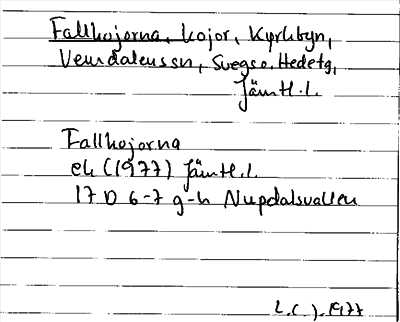 Fallkojorna, kojor, Kyrkbyn,
Vemdalens sn, Svegs o. Hedetg,
Jämtl. l.
Fallkojorna
ek (1977) Jämtl. l.
17 D 6-7 g-h Nupdalsvallen
L.C.J. 1977